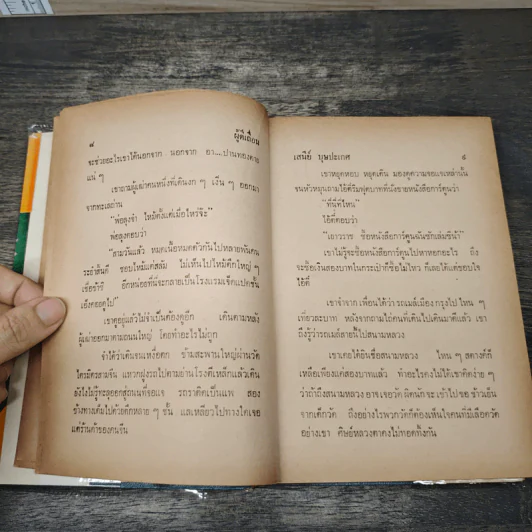 ๘ ผู้ดีเถื่อน
จะช่วยอะไรเขาได้นอกจาก นอกจาก อา....ปานทองตาย
แน่ ๆ
เขาถามผู้เฒ่าคนหนึ่งที่เดินงก ๆ เงิ่น ๆ ออกมา
จากทะเลถ่าน
“พ่อลุงจ๋า ไหม้ตั้งแต่เมื่อไหร่จ๊ะ”
พ่อลุงตอบว่า
“สามวันแล้ว หมดเนื้อหมดตัวกันไปหลายพันคน
ระยำสิ้นดี ชอบไหม้แต่สลัม ไม่เห็นไปไหม้ตึกใหญ่ ๆ
เชื่อข้าซี อีกหน่อยที่นี่จะกลายเป็นโรงแรมเจ็ดแปดชั้น
เอ็งคอยดูไป”
เขาดูอยู่แล้วไม่จำเป็นต้องดูอีก เดินตามหลัง
ผู้เฒ่าออกมาตามถนนใหญ่ โดยทำอะไรไม่ถูก
จำได้ว่าเดินจนเหงื่อตก ข้ามสะพานใหญ่ผ่านวัด
ใครมิตรสามจีน แหวกฝูงรถไปตามย่านโรงตีเหล็กแล้วเดิน
ลังไงไม่รู้ทะลุออกสู่ถนนที่จอแจ รถราติดเป็นแพ สอง
ข้างทางเต็มไปด้วยตึกหลาย ๆ ชั้น แลเหลียวไปทางใดเจอ
แต่ร้านค้าของคนจีน
เสนีย์ บุษปะเกศ ๙
เขาหยุดหอบ หยุดเดิน มองดูความจอแจเหล่านั้น
จนหัวหมุนถามไอ้ตี๋ริมฟุตบาทที่นั่งขายหนังสือการ์ตูนว่า
“ที่นี่ที่ไหน”
ไอ้ตี๋ตอบว่า
“เยาวราช ซื้อหนังสือการ์ตูนฉันซักเล่มซีน้า”
เขาไม่รู้จะซื้อหนังสือการ์ตูนไปหาหอกอะไร ถึง
จะซื้อเงินสองบาทในกระเป๋าก็ซื้อไม่ไหว ก็เลยได้แต่ขอบใจ
ไอ้ตี๋
เขาจำจากเพื่อนได้ว่า รถเมล์เมืองกรุงไปไหน ๆ
เที่ยวละบาท หลังจากถามไถ่คนที่เดินไปเดินมาดีแล้ว เขา
ถึงรู้ว่ารถเมล์สายนี้ไปสนามหลวง
เขาเคยได้ยินชื่อสนามหลวง ไหน ๆ สตางค์ก็
เหลือเพียงแค่สองบาทแล้ว ทำอะไรคงไม่ได้เขาคิดง่าย ๆ
ว่าถ้าถึงสนามหลวง อาจเจอวัด คิดนักจะเข้าไปขอ ข้าวเย็น
จากเด็กวัด ถึงอย่างไรพวกวัดก็ต้องเห็นใจคนที่มีเลือดวัด
อย่างเขา ศิษย์หลวงตาคงไม่ทอดทิ้งกัน